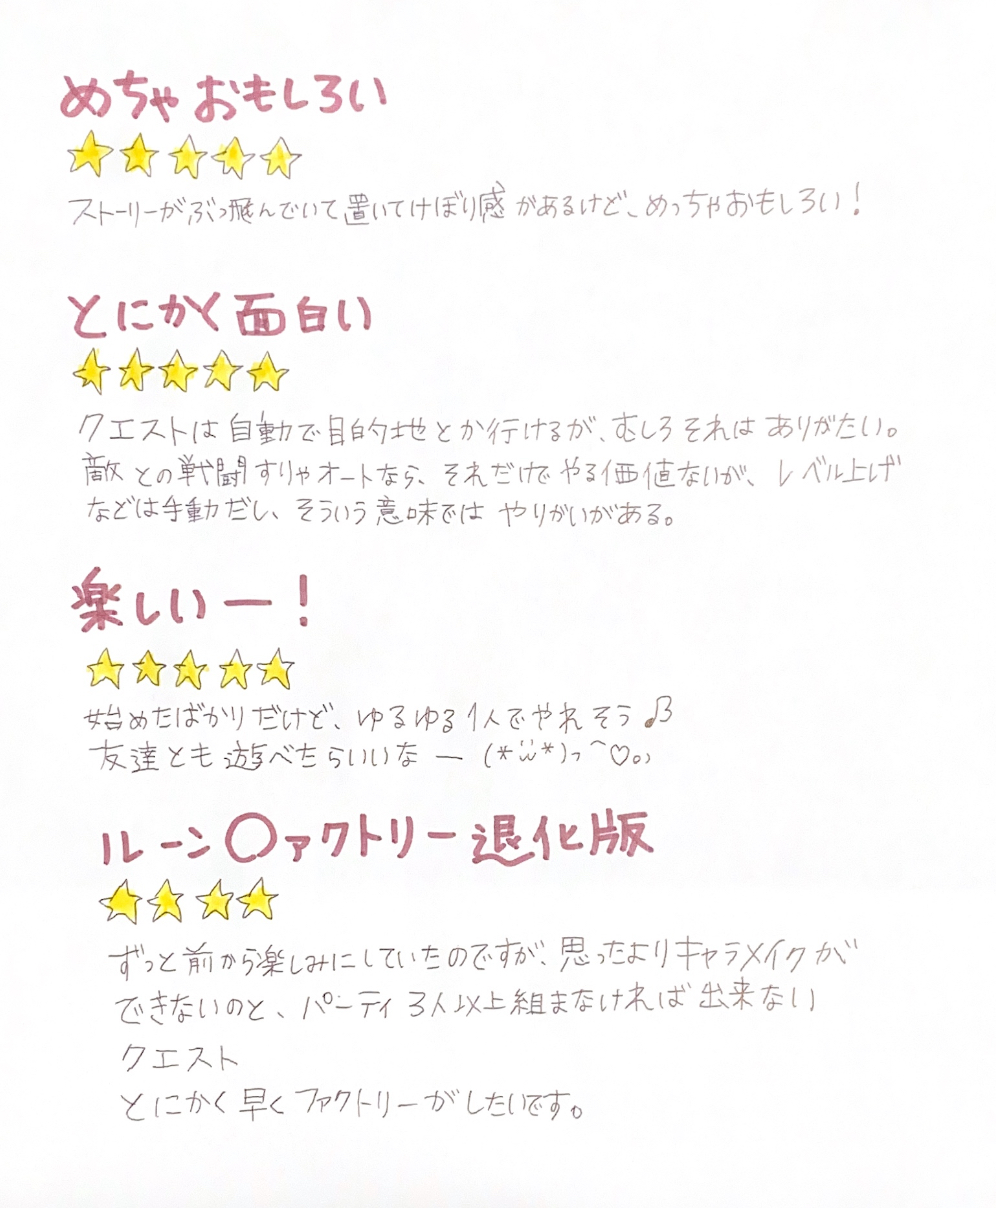 めちゃおもしろい
★★★★★
ストーリーがぶっ飛んでいて置いてけぼり感があるけど、めっちゃおもしろい！
とにかく面白い
★★★★★
クエストは自動で目的地とか行けるが、むしろそれはありがたい。
敵との戦闘すりゃオートなら、それだけでやる価値ないが、レベル上げ
などは手動だし、そういう意味ではやりがいがある。
楽しいー！
★★★★★
始めたばかりだけど、ゆるゆる1人でやれそう♪
友達とも遊べたらいいなー (*¨̮*)っ⌒♡。，
ルーン〇ァクトリー退化版
★★★★
ずっと前から楽しみにしていたのですが、思ったよりキャラメイクが
できないのと、パーティ3人以上組まなければ出来ない
クエスト
とにかく早くファクトリーがしたいです。